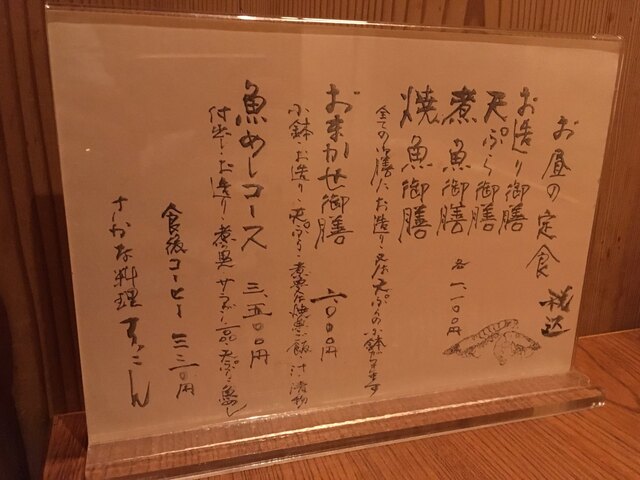 お昼の定食 税込
お造り御膳
天ぷら御膳
煮魚御膳 各一、一〇〇円
焼魚御膳
全ての御膳に、お造り、又は天ぷらの小鉢がつきます
おまかせ御膳
小鉢・お造り・天ぷら・煮魚又は焼魚・飯・汁・漬物
魚めしコース 三、五〇〇円
付出し・お造り・煮魚・サラダ・一品・天ぷら・魚めし
食後コーヒー 三三〇円
さかな料理